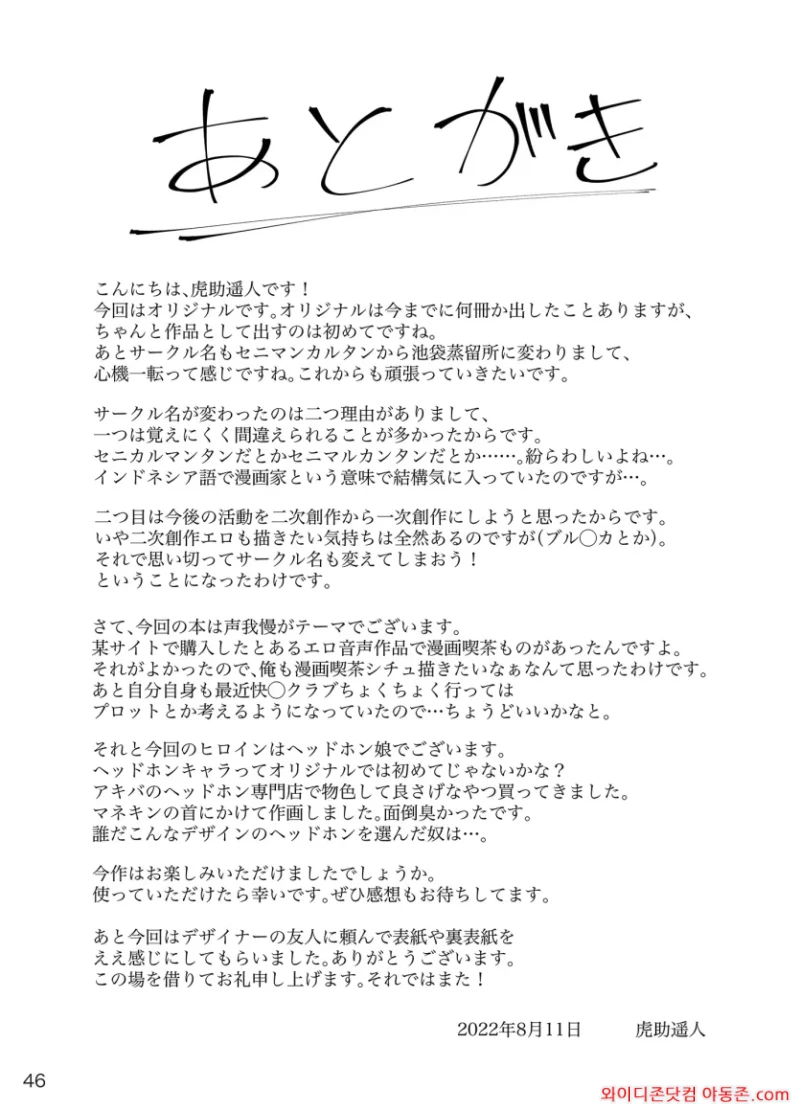 あとがき
こんにちは、虎助遥人です！
今回はオリジナルです。オリジナルは今までに何冊か出したことありますが、
ちゃんと作品として出すのは初めてですね。
あとサークル名もセニマンカルタンから池袋蒸留所に変わりまして、
心機一転って感じですね。これからも頑張っていきたいです。
サークル名が変わったのは二つ理由がありまして、
一つは覚えにくく間違えられることが多かったからです。
セニカルマンタンだとかセニマルカンタンだとか……。紛らわしいよね…。
インドネシア語で漫画家という意味で結構気に入っていたのですが…。
二つ目は今後の活動を二次創作から一次創作にしようと思ったからです。
いや二次創作エロも描きたい気持ちは全然あるのですが(ブル◯カとか)。
それで思い切ってサークル名も変えてしまおう！
ということになったわけです。
さて、今回の本は声我慢がテーマでございます。
某サイトで購入したとあるエロ音声作品で漫画喫茶ものがあったんですよ。
それがよかったので、俺も漫画喫茶シチュ描きたいなぁなんて思ったわけです。
あと自分自身も最近快◯クラブちょくちょく行っては
プロットとか考えるようになっていたので…ちょうどいいかなと。
それと今回のヒロインはヘッドホン娘でございます。
ヘッドホンキャラってオリジナルでは初めてじゃないかな？
アキバのヘッドホン専門店で物色して良さげなやつ買ってきました。
マネキンの首にかけて作画しました。面倒臭かったです。
誰だこんなデザインのヘッドホンを選んだ奴は…。
今作はお楽しみいただけましたでしょうか。
使っていただけたら幸いです。ぜひ感想もお待ちしてます。
あと今回はデザイナーの友人に頼んで表紙や裏表紙を
ええ感じにしてもらいました。ありがとうございます。
この場を借りてお礼申し上げます。それではまた！
2022年8月11日 虎助遥人
46
와이디존닷컴 야동존.com